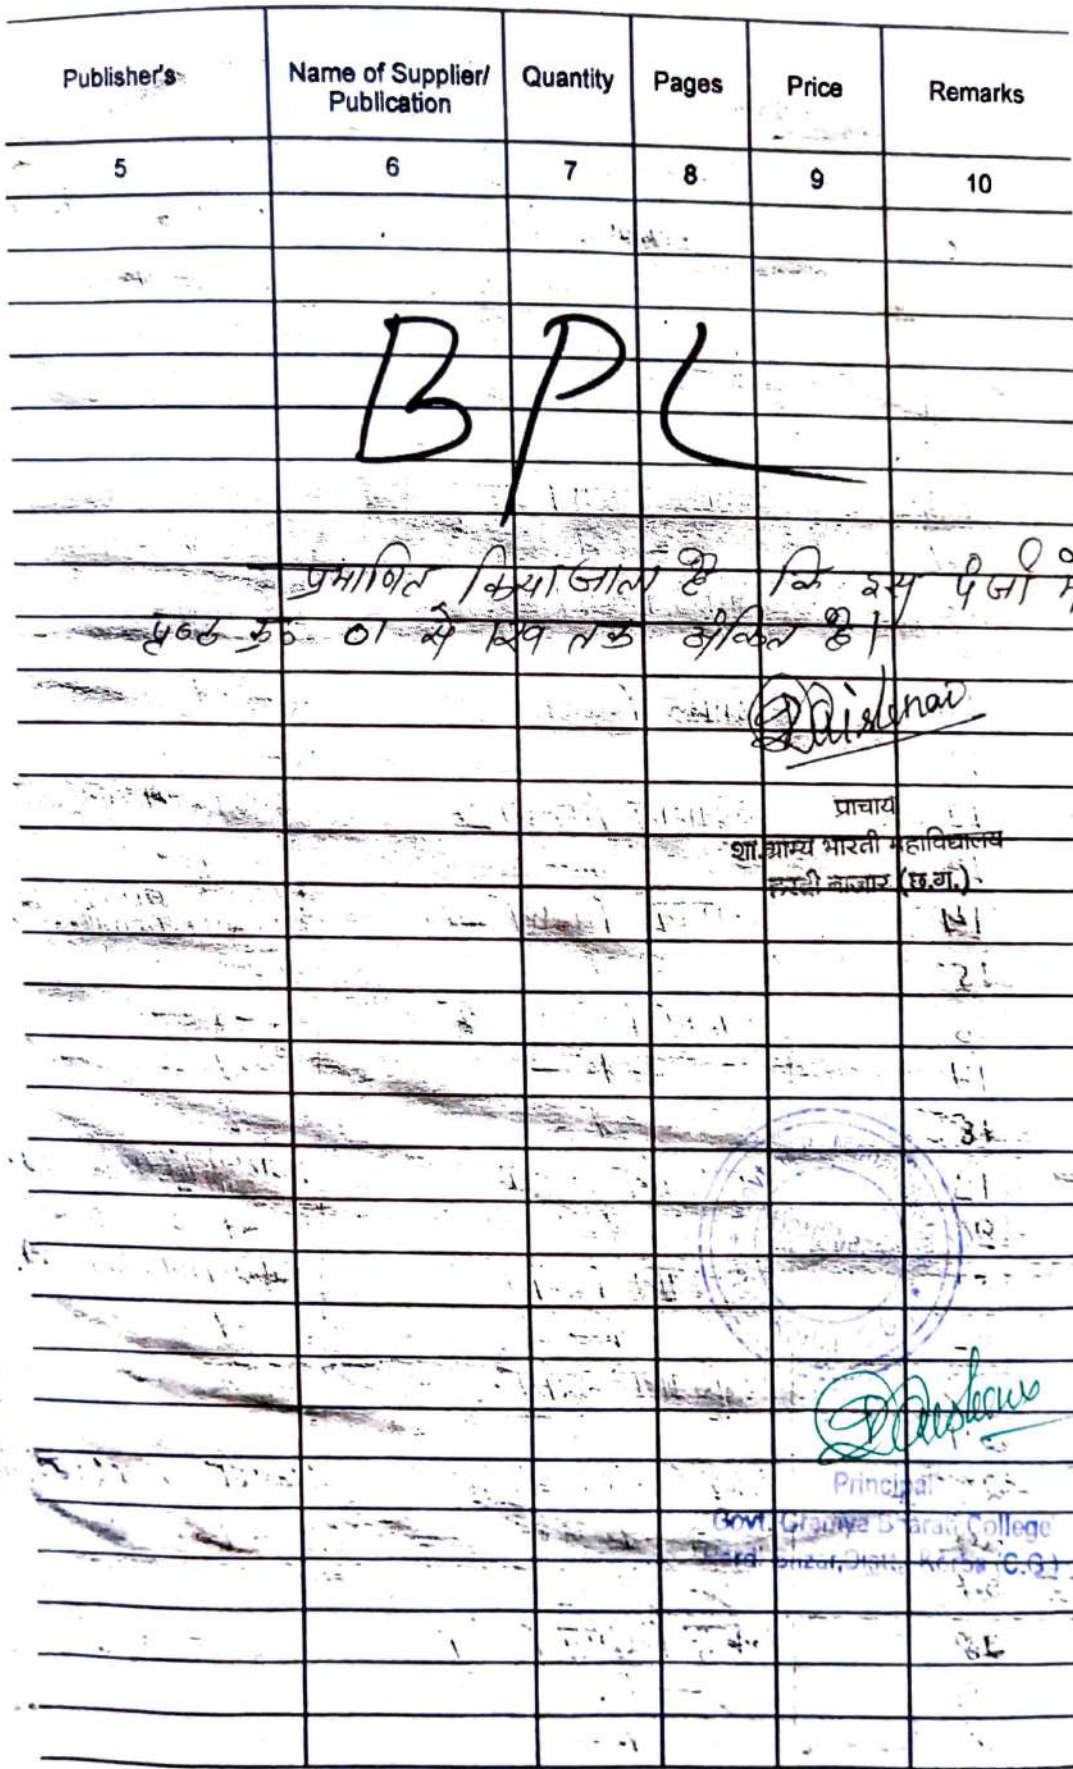 Publisher's Name of Supplier/ Publication Quantity Pages Price Remarks
5 6 7 8 9 10
BPL
प्रमाणित किया जाता है कि इस पंजी में
पृष्ठ क्र० 01 से तक अंकित है।
प्राचार्य
शा. ग्राम्य भारती महाविद्यालय
हरदी बाजार (छ.ग.)
Principal
Govt. Gramya Bharati College
Hardi Bazar, Distt. Korba (C.G.)